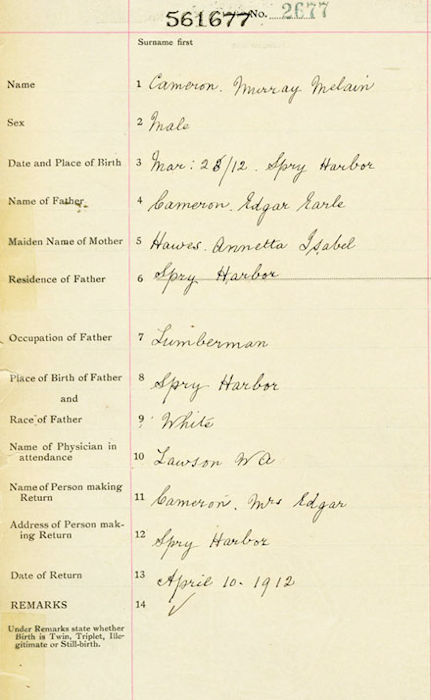 561677 No. 2677
Surname first
Name 1 Cameron. Murray Melain
Sex 2 Male
Date and Place of Birth 3 Mar: 28/12. Spry Harbor
Name of Father 4 Cameron. Edgar Earle
Maiden Name of Mother 5 Hawes. Annetta Isabel
Residence of Father 6 Spry Harbor
Occupation of Father 7 Lumberman
Place of Birth of Father 8 Spry Harbor
and
Race of Father 9 White
Name of Physician in
attendance 10 Lawson W A
Name of Person making
Return 11 Cameron. Mrs Edgar
Address of Person mak-
ing Return 12 Spry Harbor
Date of Return 13 April 10. 1912
REMARKS 14 ✓
Under Remarks state whether
Birth is Twin, Triplet, Ille-
gitimate or Still-birth.